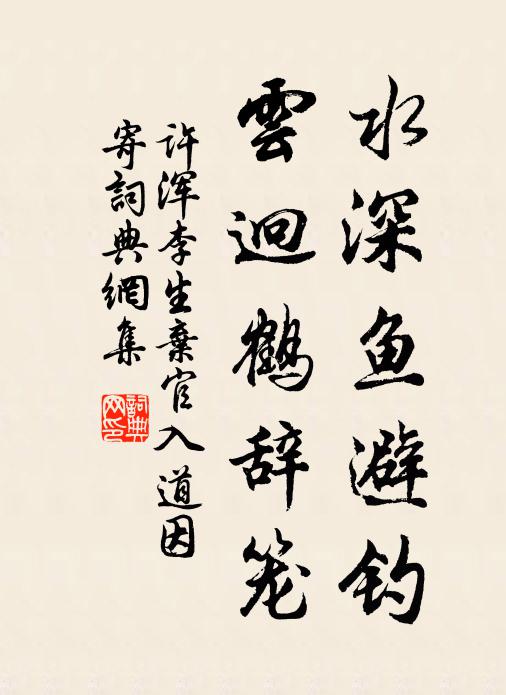 水深鱼避钓
雲迥鹤辞笼
许浑李生棄官入道因
寄詞典網集
詞典网印